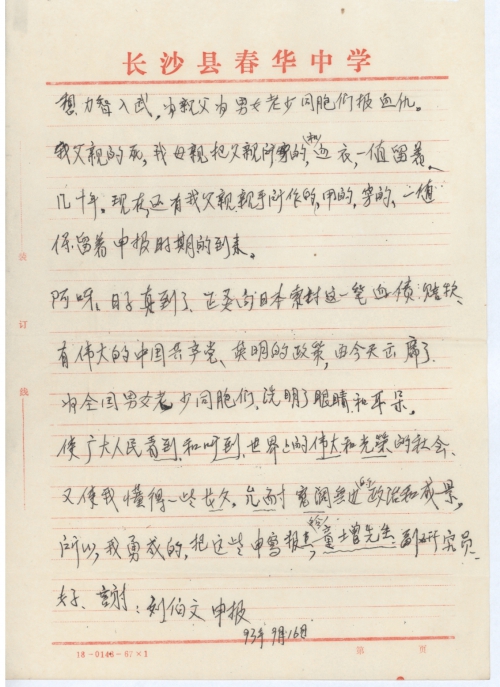 长沙县春华中学
想力智入武,为亲父为男女老少同胞们报血仇。
我父亲的死,我母亲把父亲所穿的,血衣,一值留着、
几十年。现在还有我父亲亲手所作的,用的,穿的,一值
保留着申报时期的到来。
阿呀:日子真到了、正要向日本索付这一笔血债赔款、
有伟大的中国共产党、英明的政策,由今天出席了
为全国男女老少同胞们,洗明了眼睛和耳朵,
使广大人民看到和听到,世界上的伟大和光荣的社会、
又使我懂得一些长久,宽阔无边政治和成果,
所以,我勇敢的,把这些申写报给童增先生:副研究员
刘伯文申报
93年9月16日
装
订
线
18-0146-62×1
第 页